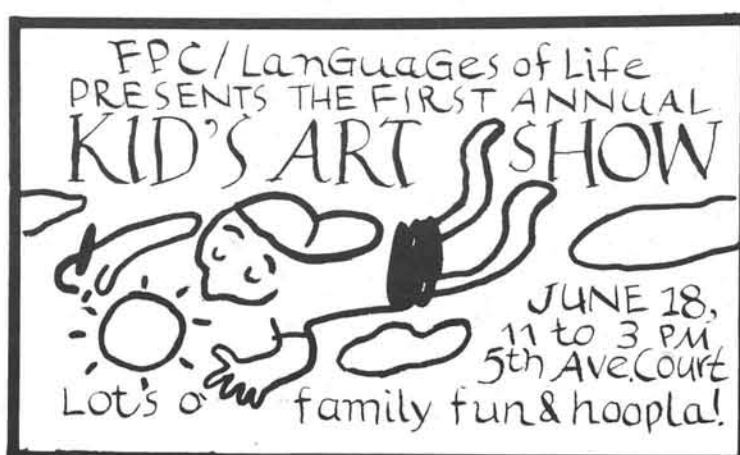 FPC/LanGuaGes of Life
PRESENTS THE FIRST ANNUAL
KID'S ART SHOW
JUNE 18,
11 to 3 PM
5th Ave. Court
Lot's o' family fun & hoopla!